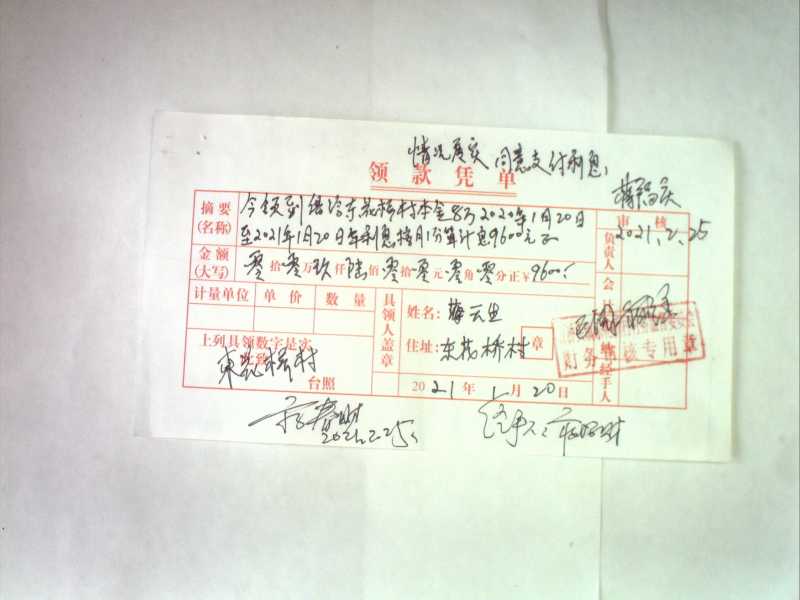 情况属实 同意支付利息
领款凭单
摘要(名称) 今领到 东花桥村本金8万2020年1月20日
至2021年1月20日年利息按月1分算计息9600元正
审核
2021.2.25
负责人
金额(大写) 零拾零万玖仟陆佰零拾零元零角零分正¥9600
会
计量单位 单价 数量
具领人盖章
姓名: 梅云生
住址: 东花桥村 章
财务 核专用章
经手人
上列具领数字是实
東花桥村
台照
2021年1月20日
2021.2.25
经手人: